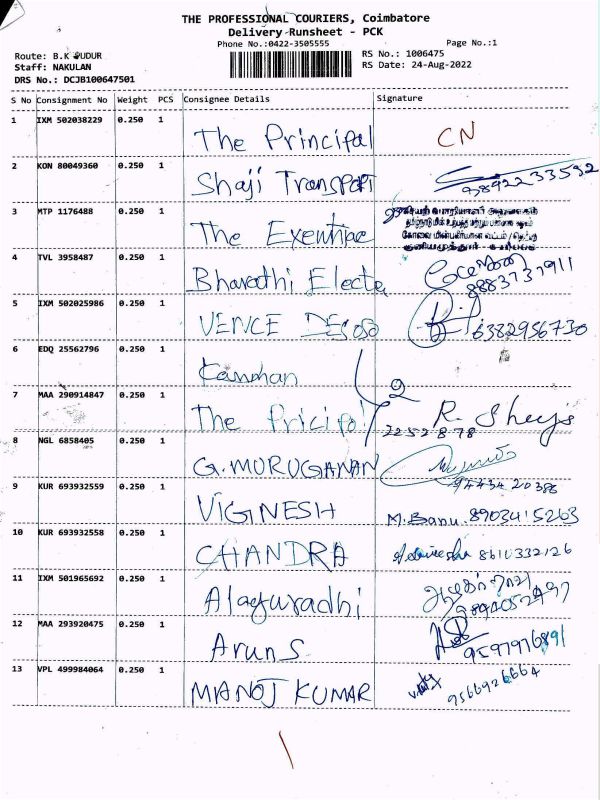 THE PROFESSIONAL COURIERS, Coimbatore
Delivery Runsheet - PCK
Phone No.:0422-3505555
Page No.:1
Route: B.K PUDUR
RS No.: 1006475
Staff: NAKULAN
RS Date: 24-Aug-2022
DRS No.: DCJB100647501
S No Consignment No Weight PCS Consignee Details Signature
1 IXM 502038229 0.250 1 The Principal CN
2 KON 80049360 0.250 1 Shaji Transport 9892233592
3 MTP 1176488 0.250 1 The Exentiae
4 TVL 3958487 0.250 1 Bharathi Electa 8883737911
5 IXM 502025986 0.250 1 VENCE DESOSO 6382956730
6 EDQ 25562796 0.250 1 Kannan
7 MAA 290914847 0.250 1 The Pricipal 2252878 R. Sheeja
8 NGL 6858405 0.250 1 G. MURUGANAN 9443420386
9 KUR 693932559 0.250 1 VIGINESH M. Banu. 8903415263
10 KUR 693932558 0.250 1 CHANDRA 8610332126
11 IXM 501965692 0.250 1 Alaguradhi
12 MAA 293920475 0.250 1 Arun S 9597976891
13 VPL 499984064 0.250 1 MANOJ KUMAR 9566926664